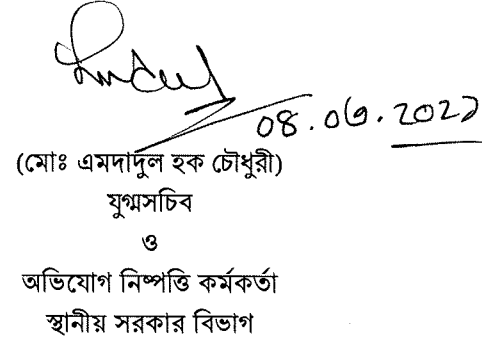 ০৪.০৩.২০২১
(মোঃ এমদাদুল হক চৌধুরী)
যুগ্মসচিব
ও
অভিযোগ নিষ্পত্তি কর্মকর্তা
স্থানীয় সরকার বিভাগ